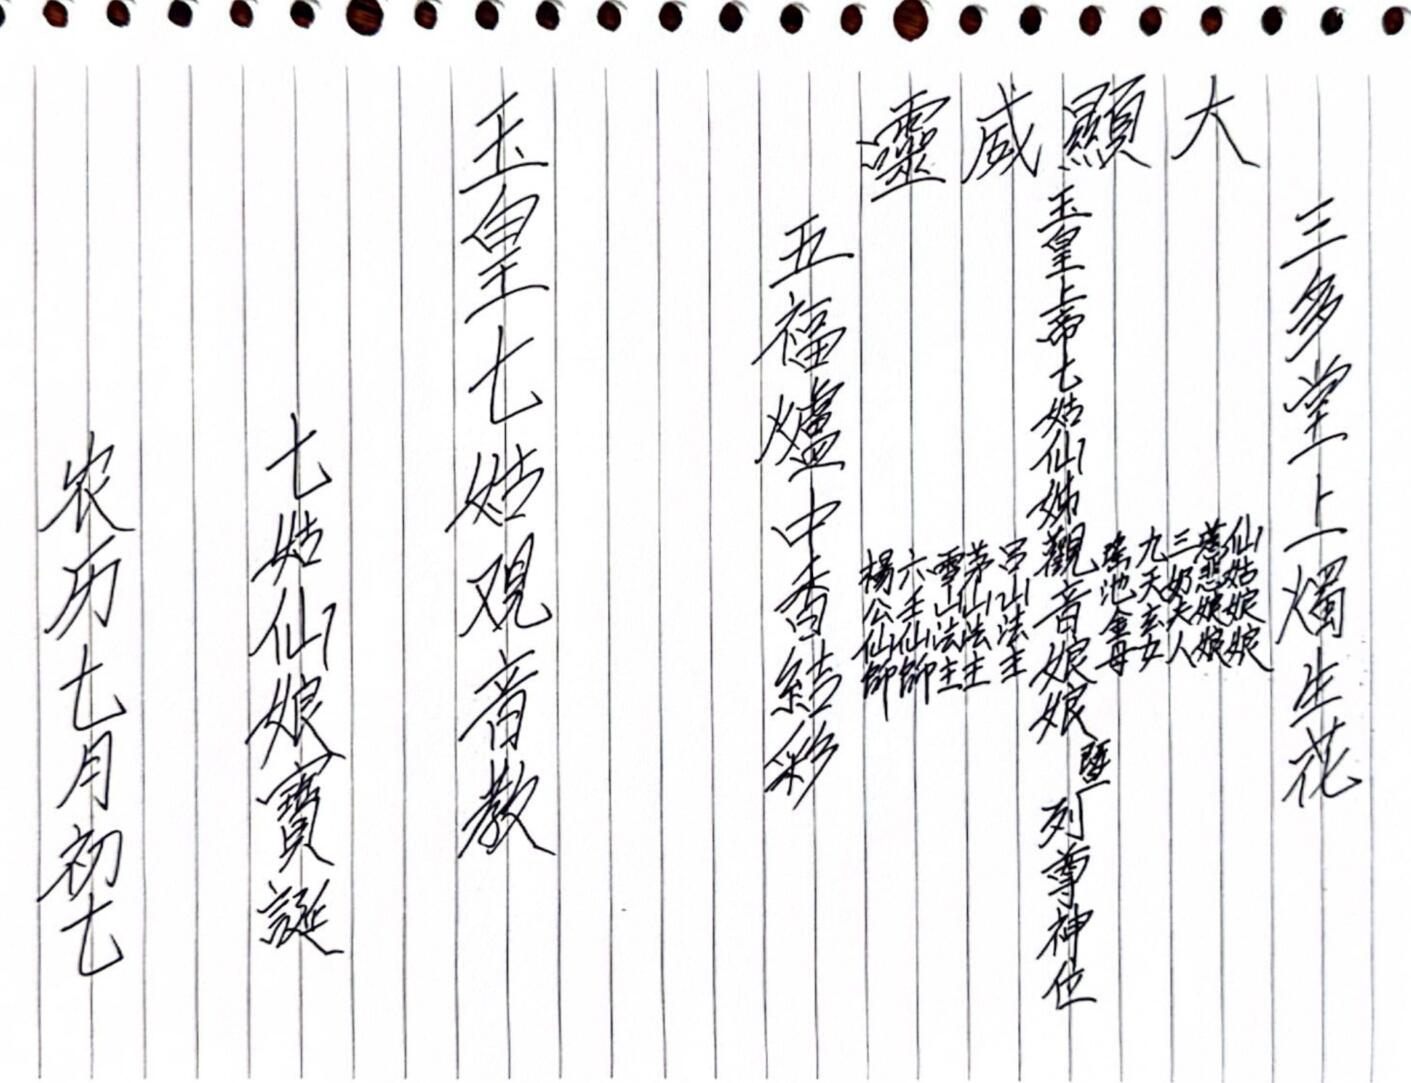 大顯威靈
三多堂上燭生花
仙姑娘娘
慈悲娘娘
三奶夫人
九天玄女
瑤池金母
玉皇上帝七姑仙姊觀音娘娘暨列尊神位
呂山法主
茅山法主
雪山法主
六壬仙師
楊公仙師
五福爐中香結彩
玉皇七姑观音教
七姑仙娘寶誕
农历七月初七